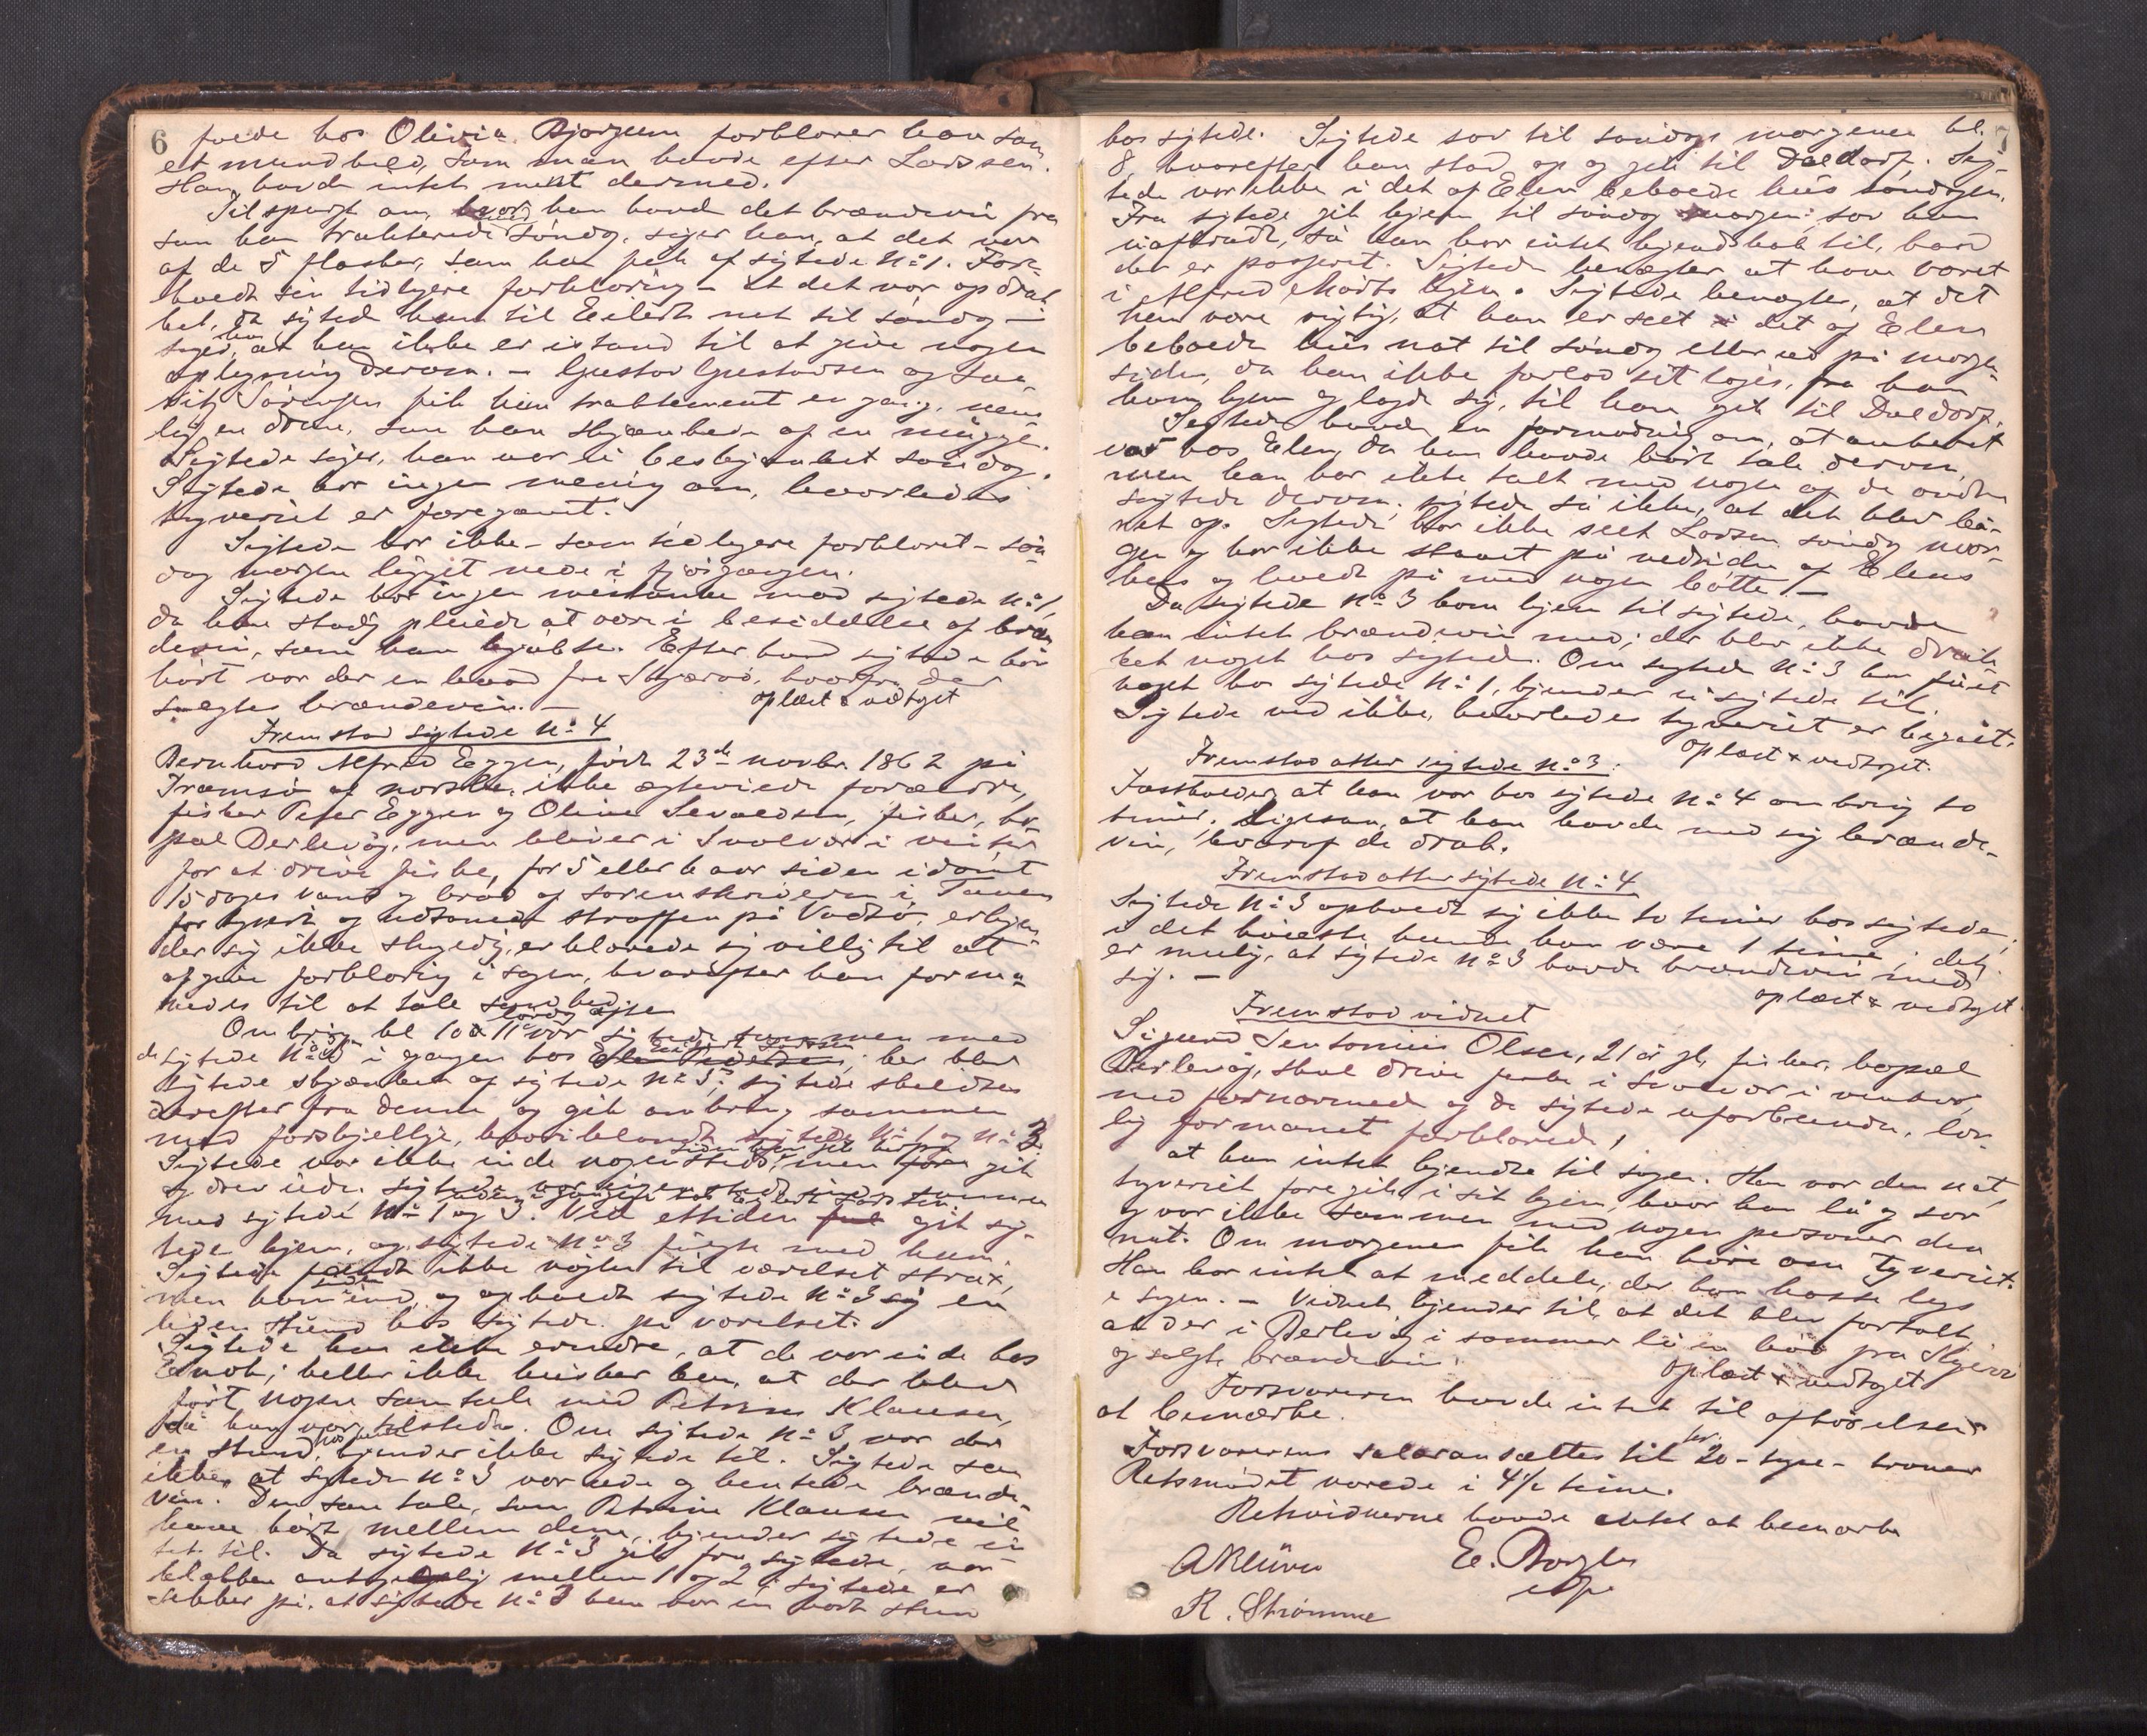 6
hos Olivia forklarer han som
et mundheld, som man havde efter Larssen.
Han havde intet ment dermed.
Tilspurgt om, hvor han havde det brændevin fra
som han trakterede søndag, siger han, at det var
af de 5 flasker, som han fik af sigtede No 1. Fore-
holdt sin tidligere forklaring – at det var opdruk-
ket, da sigtede kom til nat til søndag –
siger han, at han ikke er istand til at give nogen
oplysning derom. – Gustav Gustavsen og
Sørensen fik kun traktement en gang, nem-
lig en dram, som han skjænkede af en mugge.
Sigtede siger, han var beskjænket søndag.
Sigtede har ingen mening om, hvorledes
tyveriet er foregaaet.
Sigtede har ikke – som tidligere forklaret – søn-
dag morgen ligget nede i fjøsgangen.
Sigtede har ingen mistanke mod sigtede No 1,
da han stadig pleiede at være i besiddelse af bræn-
devin, som han kjøbte. Efter hvad sigtede har
hørt var der en baad fra Skjærvø, hvorfra der
solgtes brændevin. –
oplæst & vedtaget
Fremstod sigtede No 4
Bernhard Alfred Eggen, født 23de novbr. 1862 på
Tromsø af norske, ikke ægteviede forældre,
fisker Peter Eggen og Oline Sevaldsen, fisker, bo-
pæl Berlevåg, men bliver i Svolvær i vinter
for at drive fiske, for 5 eller 6 aar siden idømt
15 dages vand og brød af sorenskriveren i Tanen
for tyveri og udsonede straffen på Vadsø, erkjen-
der sig ikke skyldig, erklærede sig villig til at
afgive forklaring i sagen, hvorefter han forma-
nedes til at tale sandhed.
lørdag aften
Omkring kl 10 a 11 var sigtede sammen med
sigtede No i gangen hos her blev
sigtede skjænket af sigtede No 5; sigtede skildtes
derefter fra denne og gik omkring sammen
med forskjellige, hvoriblandt sigtede No 1 og No 3.
Sigtede var ikke inde nogensteds, men gik
og drev ude. sigtede var sammen
med sigtede No 1 og 3. Ved ettiden gik sig-
tede hjem, og sigtede No 3 fulgte med ham.
Sigtede fandt ikke nøglen til værelset strax,
men kom siden ind, og opholdt sigtede No 3 sig en
liden stund hos sigtede på værelset.
Sigtede kan ikke erindre, at de var inde hos
Enok; heller ikke husker han, at der blev
ført nogen samtale med Petrine Klausen,
da han var tilstede. Om sigtede No 3 var der
en stund, kjender ikke sigtede til. Sigtede saa
ikke, at sigtede No 3 var ude og hentede brænde-
vin. Den samtale, som Petrine Klausen vil
have hørt mellem dem, kjender sigtede in-
tet til. Da sigtede No 3 gik fra sigtede, var
klokken antagelig mellem 1 og 2; sigtede er
sikker på, at sigtede No 3 kun var en kort stund
7
hos sigtede. Sigtede sov til søndags morgenen kl.
8, hvorefter han stod op og gik til Daldorf. Sig-
tede var ikke i det af Elen beboede hus søndagen.
Fra sigtede gik hjem til søndag morgen sov han
uafbrudt, så han har intet kjendskab til, hvad
der er passeret. Sigtede benægter at have været
i Alfred hjem. Sigtede benægter, at det
kan være rigtig, at han er seet i det af Elen
beboede hus nat til søndag eller ud på morgen-
siden, da han ikke forlod sit logis, fra han
kom hjem og lagde sig, til han gik til Daldorf.
Sigtede havde en formodning om, at ankeret
var hos Elen, da han havde hørt tale derom,
men han har ikke talt med nogen af de andre
sigtede derom; sigtede så ikke, at det blev bå-
ret op. Sigtede har ikke seet Larsen søndag mor-
gen og har ikke staaet på nedsiden af Elens
hus og holdt på med nogen bøtte. –
Da sigtede No 3 kom hjem til sigtede, havde
han intet brændevin med; der blev ikke druk-
ket noget hos sigtede. Om sigtede No 3 har fået
noget hos sigtede No 1, kjender ei sigtede til.
Sigtede ved ikke, hvorledes tyveriet er begået.
oplæst & vedtaget.
Fremstod atter sigtede No 3.
Fastholder, at han var hos sigtede No 4 omkring to
timer, ligesom, at han havde med sig brænde-
vin, hvoraf de drak.
Fremstod atter sigtede No 4
Sigtede No 3 opholdt sig ikke to timer hos sigtede;
i det høieste kunde han være 1 time; det
er mulig, at sigtede No 3 havde brændevin med
sig. –
oplæst & vedtaget
Fremstod vidnet
Sigurd Olsen, 21 år gl, fisker, bopæl
Berlevåg, skal drive fiske i Svolvær i vinter,
med fornærmede og de sigtede uforbunden, lov-
lig formanet forklarede,
at han intet kjendte til sagen. Han var den nat,
tyveriet foregik, i sit hjem, hvor han lå og sov
og var ikke sammen med nogen personer den
nat. Om morgenen fik han høre om tyveriet.
Han har intet at meddele, der kan kaste lys
i sagen. – Vidnet kjender til, at det blev fortalt,
at der i Berlevåg i sommer lå en båd fra Skjervø
og solgte brændevin.
oplæst & vedtaget
Forsvareren havde intet til afhørelsen
at bemærke.
Forsvarerens salær ansættes til kr. 20 – tyve – kroner
Retsmødet varede i 4½ time.
Retsvidnerne havde intet at bemærke
R. Strømme